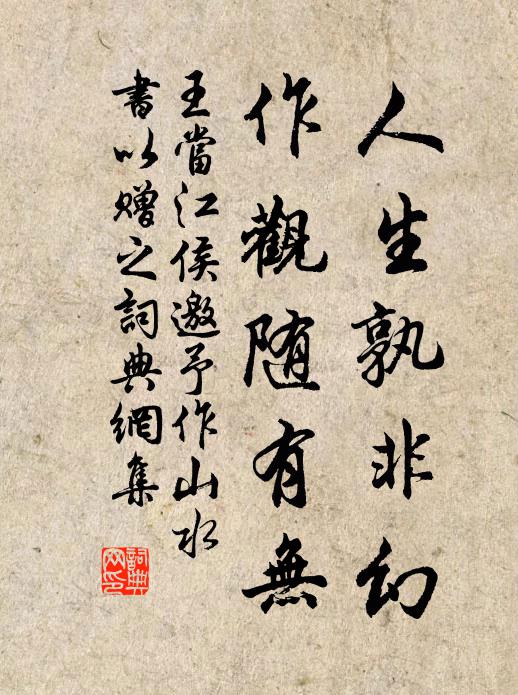 人生孰非幻
作觀随有無
王當江侯邀予作山水
書以贈之詞典網集
詞典網印